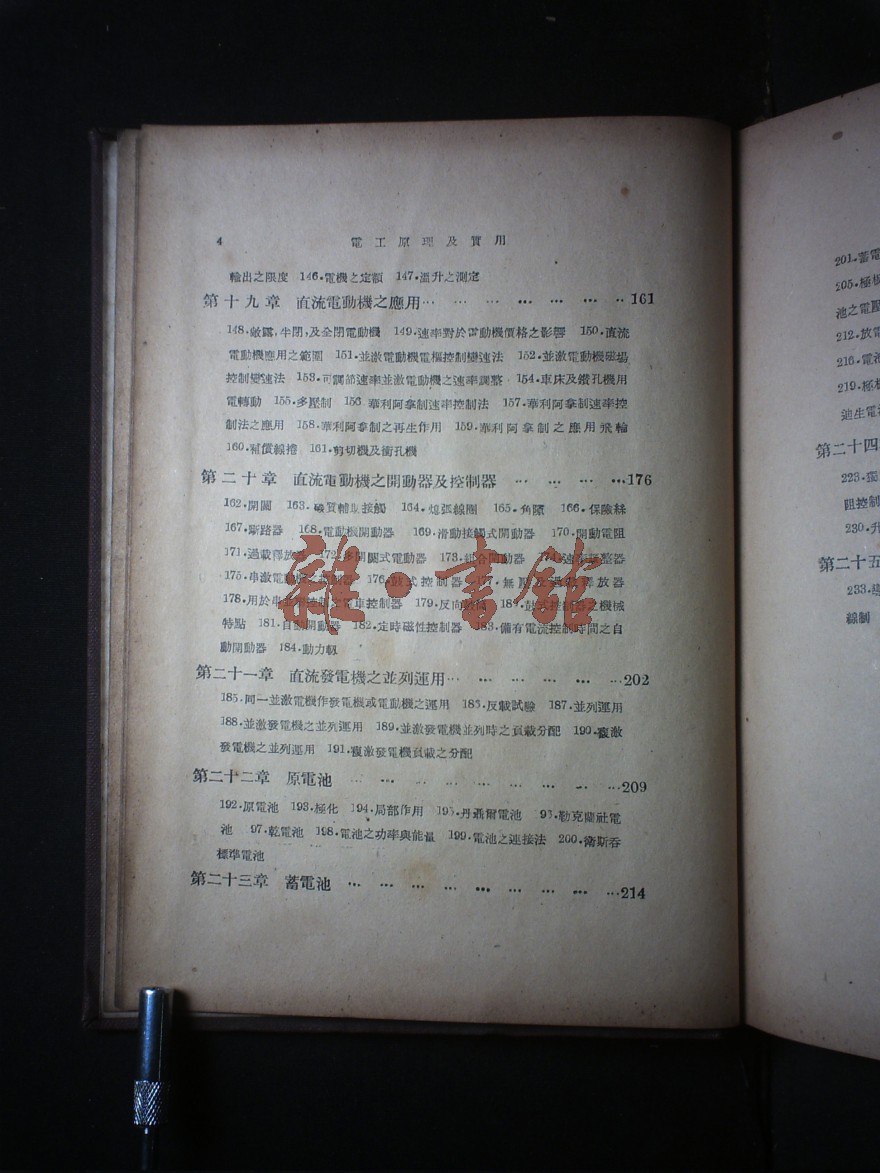 4 電工原理及實用
輸出之限度 146.電機之定額 147.溫升之測定
第十九章 直流電動機之應用 ... ... ... ... ... ... ... 161
148.敞露,半閉,及全閉電動機 149.速率對於電動機價格之影響 150.直流
電動機應用之範圍 151.並激電動機電樞控制變速法 152.並激電動機磁場
控制變速法 153.可調節速率並激電動機之速率調整 154.車床及鑽孔機用
電轉動 155.多壓制 156 華利阿拿制速率控制法 157.華利阿拿制速率控
制法之應用 158.華利阿拿制之再生作用 159.華利阿拿制之應用飛輪
160.補償線捲 161.剪切機及衝孔機
第二十章 直流電動機之開動器及控制器 ... ... ... ... ...176
162.開關 163.碳質輔助接觸 164.熄弧線圈 165.角隙 166.保險絲
167.斷路器 168.電動機開動器 169.滑動接觸式開動器 170.開動電阻
171.過載釋放器 172.多開關式電動器 173.組合開動器 174.速率調整器
175.串激電動機之控制器 176.鼓式控制器 177.無壓及過載釋放器
178.用於串並聯控制之電車控制器 179.反向 180.鼓式控制器之機械
特點 181.自動開動器 182.定時磁性控制器 183.備有電流控制時間之自
動開動器 184.動力軔
第二十一章 直流發電機之並列運用 ... ... ... ... ... ... 202
185.同一並激電機作發電機或電動機之運用 186.反載試驗 187.並列運用
188.並激發電機之並列運用 189.並激發電機並列時之負載分配 190.複激
發電機之並列運用 191.複激發電機負載之分配
第二十二章 原電池 ... ... ... ... ... ... ... ... ...209
192.原電池 193.極化 194.局部作用 195.丹聶爾電池 93.勒克蘭社電
池 97.乾電池 198.電池之功率與能量 199.電池之連接法 200.衛斯吞
標準電池
第二十三章 蓄電池 ... ... ... ... ... ... ... ... ...214
雜·書館
201.蓄電
205.極板
池之電壓
212.放電
216.電池
219.極板
迪生電池
第二十四
223.獨
阻控制
230.升
第二十五
233.導
線制